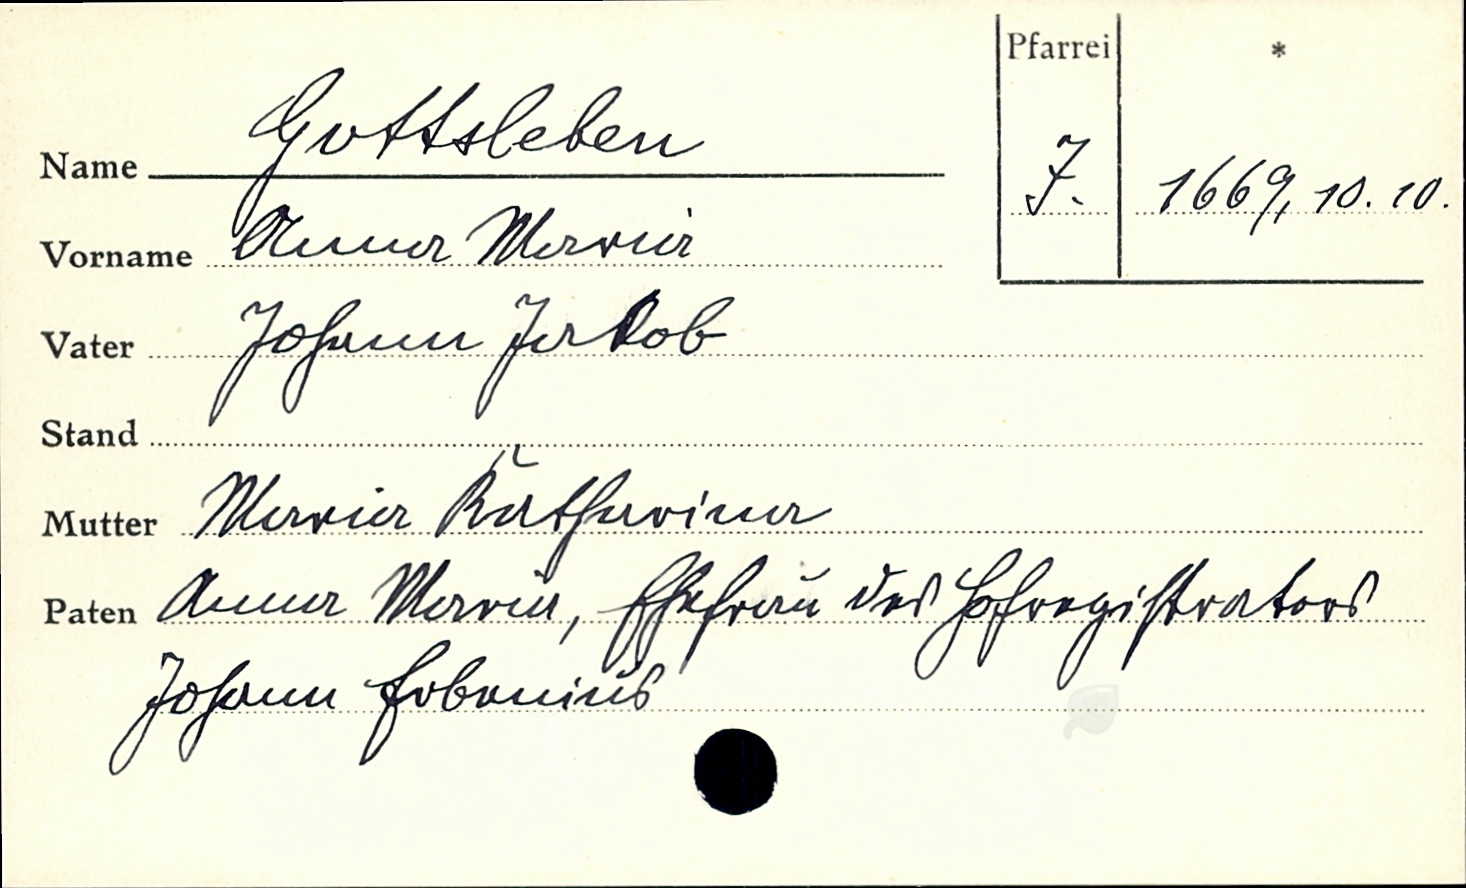 Pfarrei *
Name Gottsleben
J. 1669, 10. 10.
Vorname Anna Maria
Vater Johann Jakob
Stand
Mutter Maria Katharina
Paten Anna Maria, Ehefrau des Hofregistrators
Johann